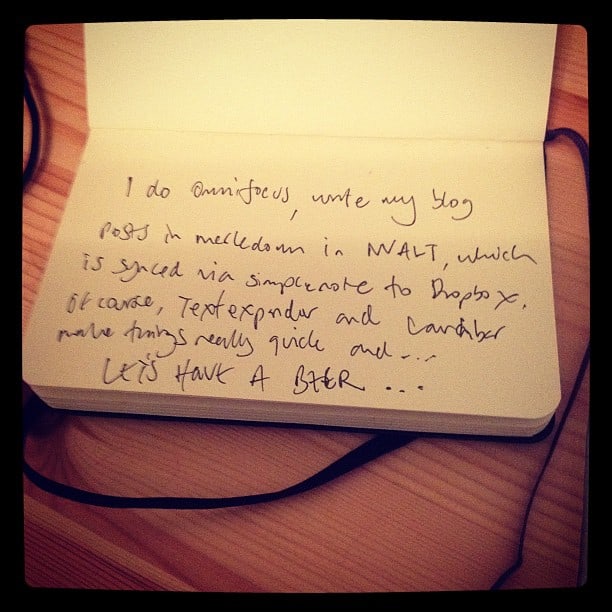 I do Omnifocus, write my blog
posts in markdown in NVALT, which
is synced via simplenote to Dropbox.
Of course, Textexpander and Launchbar
make things really quick and...
LETS HAVE A BEER ...